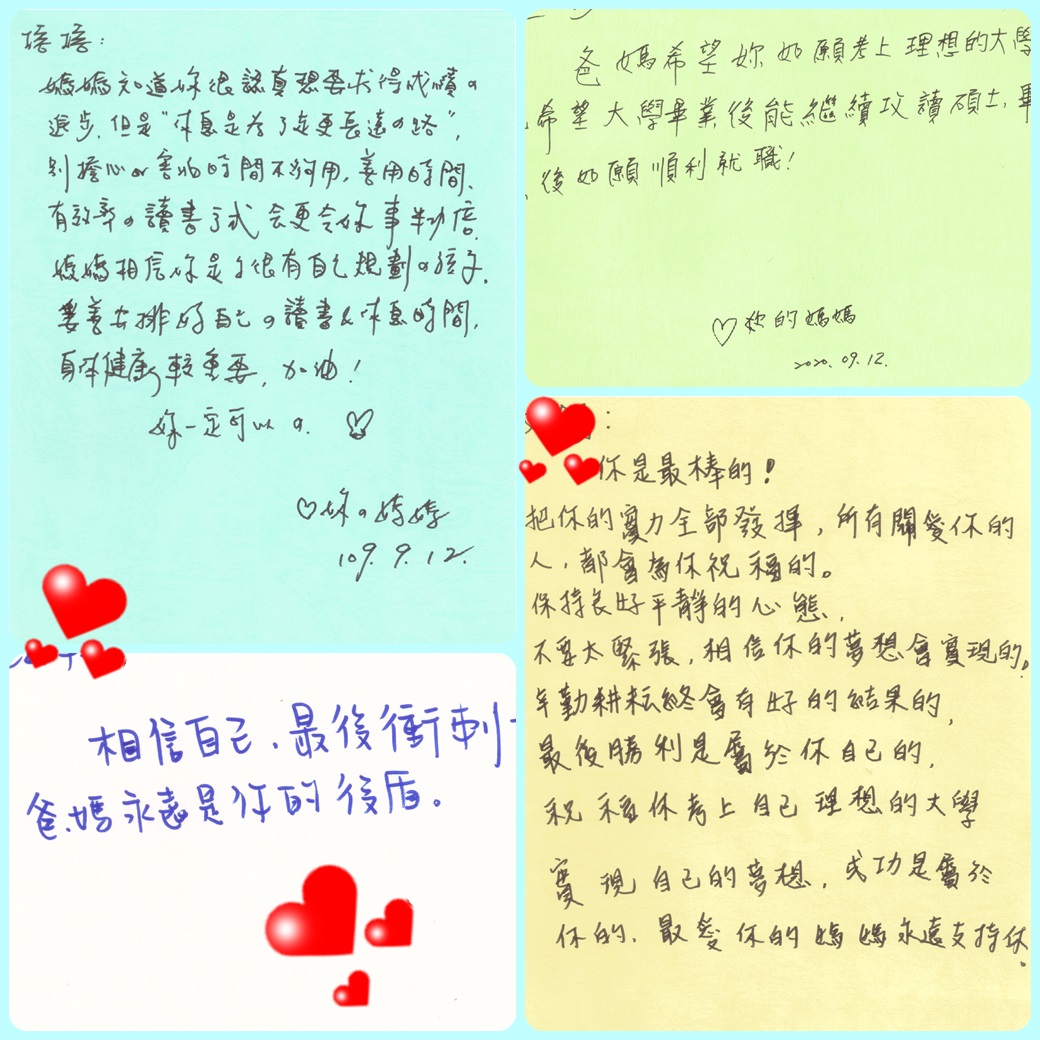 培培：
媽媽知道妳很認真想要求得成績の
進步，但是"休息是為了走更長遠の路"，
別擔心or害怕時間不夠用，善用時間、
有效率の讀書方式会更令妳事半功倍。
媽媽相信妳是个很有自己規劃の孩子，
要妥善安排好自己の讀書&休息時間，
身体健康較重要，加油！
妳一定可以の.
♡妳の媽媽
109. 9. 12.
爸媽希望妳如願考上理想的大學
希望大學畢業後能繼續攻讀碩士，畢
後如願順利就職！
♡ 你的媽媽
2020. 09. 12.
:
你是最棒的！
把你的實力全部發揮，所有關愛你的
人，都會為你祝福的。
保持良好平靜的心態，
不要太緊張，相信你的夢想會實現的。
辛勤耕耘終會有好的結果的，
最後勝利是屬於你自己的，
祝福你考上自己理想的大學
實現自己的夢想，成功是屬於
你的，最愛你的媽媽永遠支持你。
相信自己，最後衝刺
爸媽永遠是你的後盾。